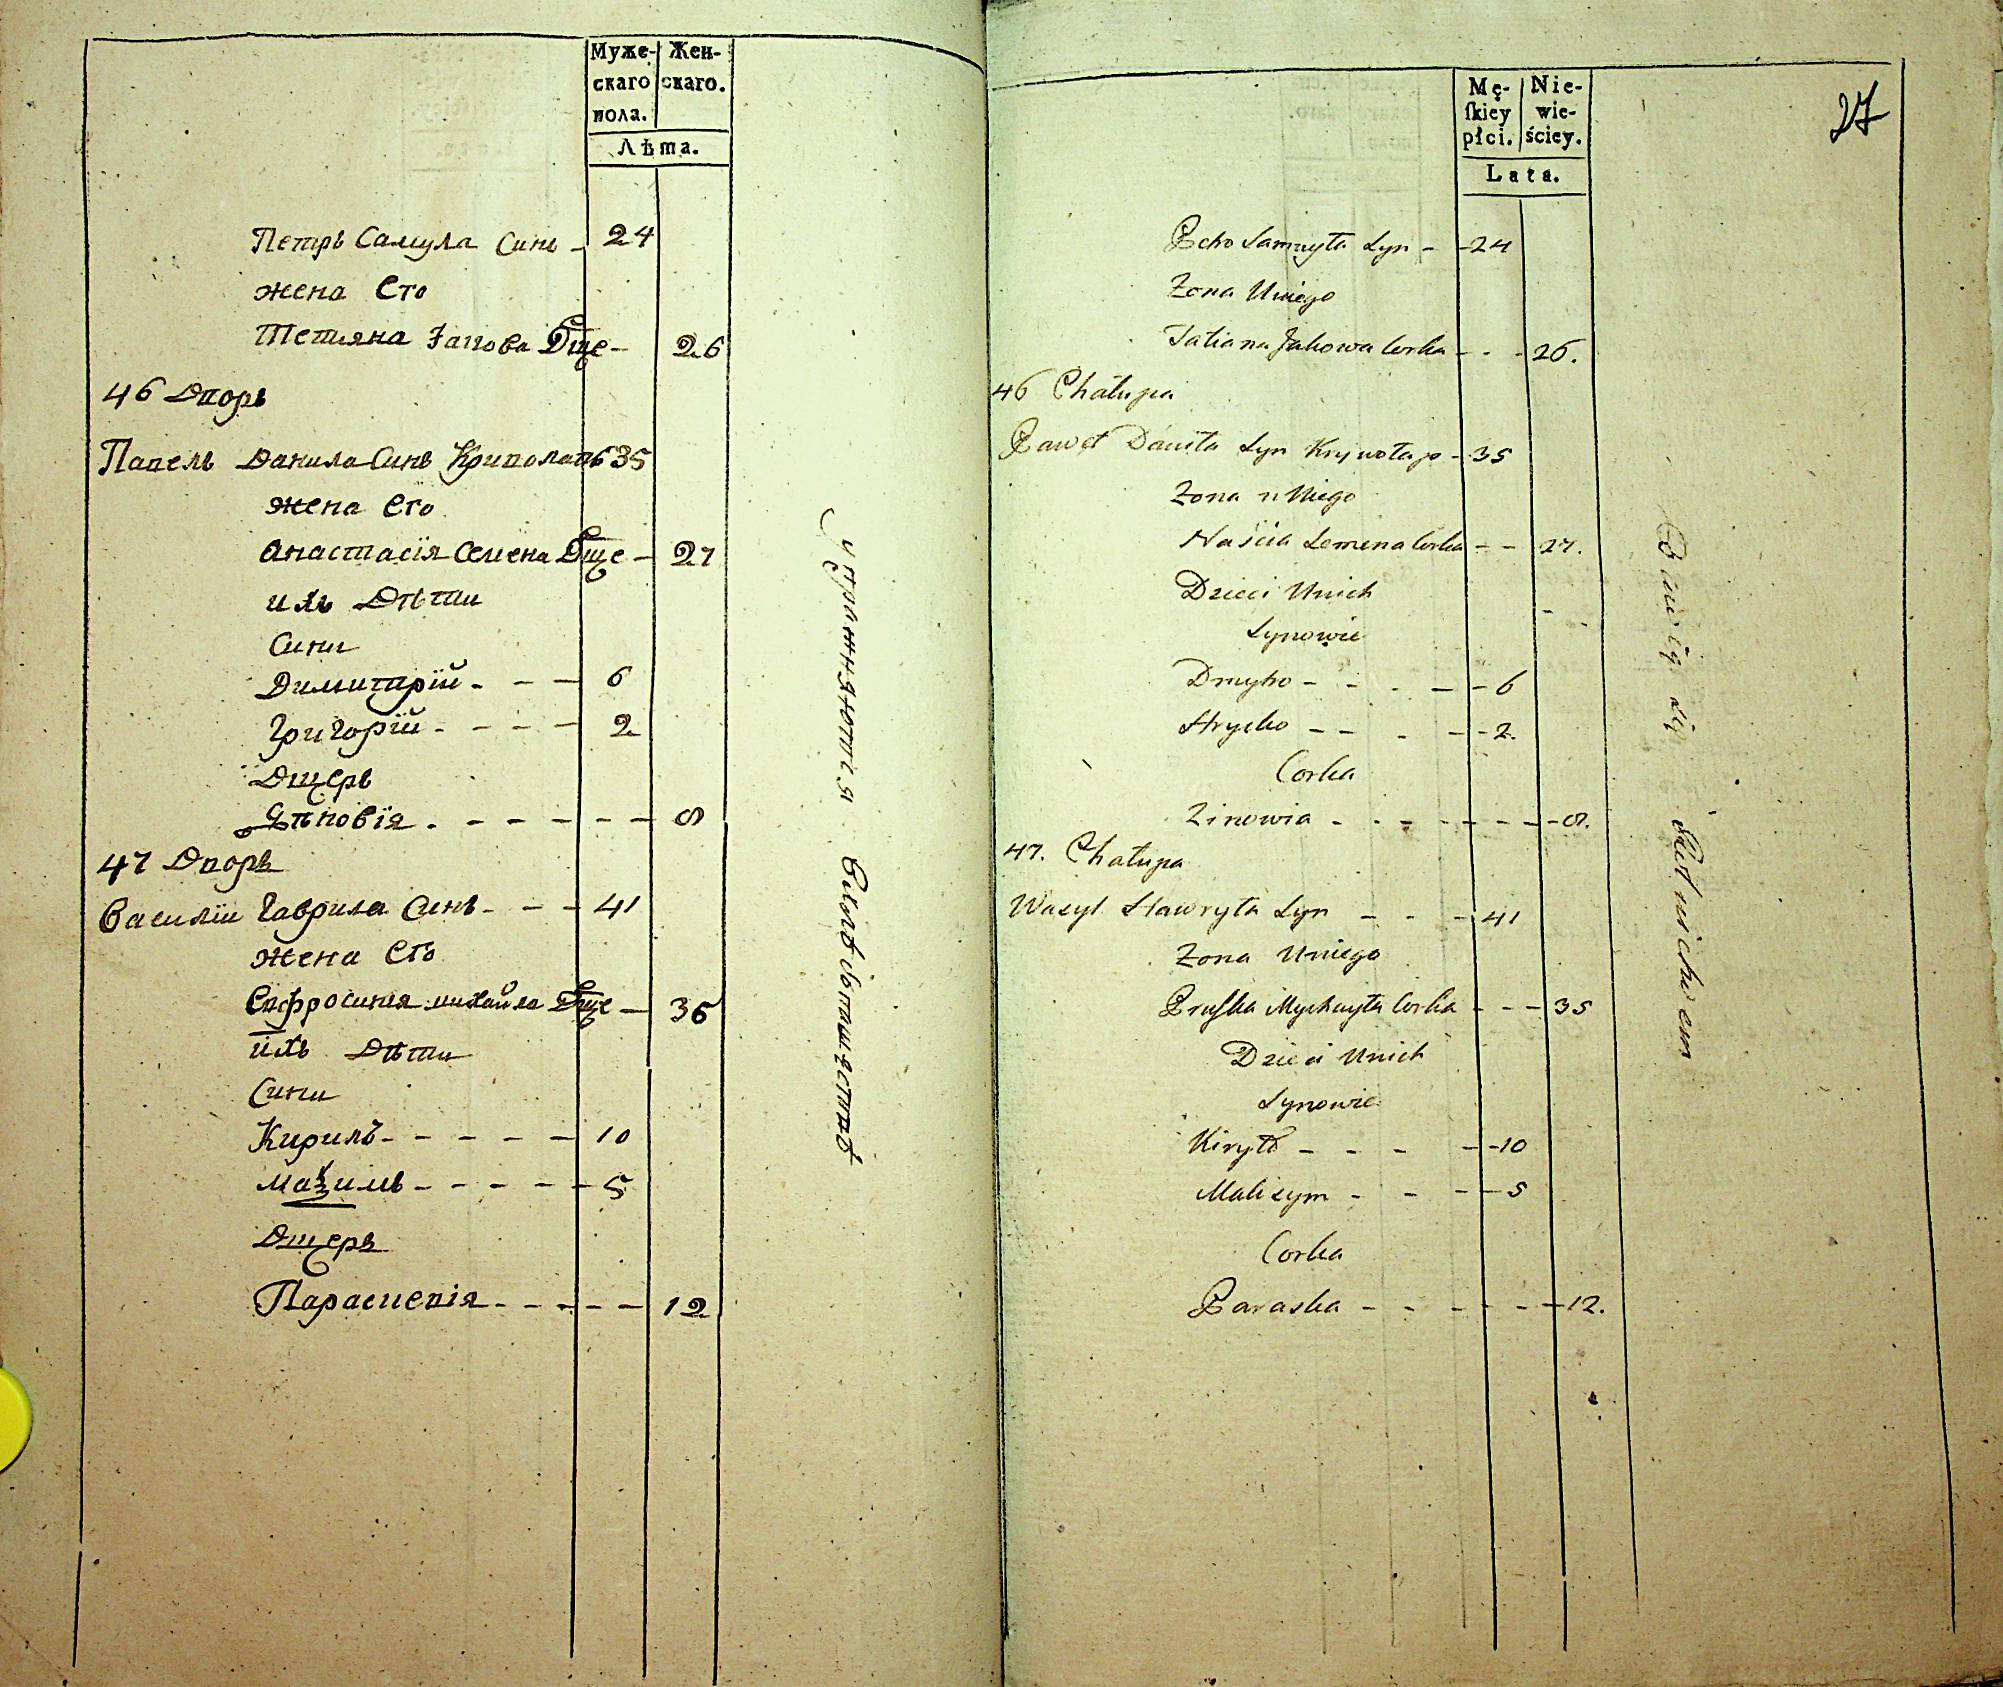 Муже-
скаго
пола.
Жен-
скаго.
Лѣта.
Петръ Самула Синъ - 24
жена Его
Тетияна Іакова Дще - 26
46 Дворъ
Павелъ Данила Синъ Криволапъ 35
жена Его
Анастасїя Семена Дще - 27
ихъ Дѣти
Сини
Димитрїй - - - 6
Григорїй - - - - 2
Дщерь
Зѣновїя - - - - - - 8
47 Дворъ
Василїи Гаврила Синъ - - - 41
жена Его
Евфросиния михайла Дще - 36
ихъ Дѣти
Сини
Кирилъ - - - - - 10
Маѯимъ - - - - - 5
Дщерь
Параскевія - - - - - 12
упражняются в хлѣбопашествѣ
27
Mę-
skiey
płci.
Nie-
wie-
ściey.
Lata.
Samuyła Syn - - 24
Zona Uniego
Tatiana Jakowa Corka - - - 26.
46 Chałupa
Paweł Daniła Syn Krywołap - 35
Zona u Niego
Naścia Semena Corka - - 27.
Dzieci Unich
Synowie
Dmytro - - - - - 6
Hrycko - - - - - 2.
Corka
Zinowia - - - - - - - 8.
47. Chałupa
Wasyl Hawryła Syn - - - 41
Zona Uniego
Pruska Mychayła Corka - - - 35
Dzieci Unich
Synowie
Kiryło - - - - - 10
Maksym - - - - 5
Corka
Paraska - - - - - - 12.
Bawią się Rolnictwem